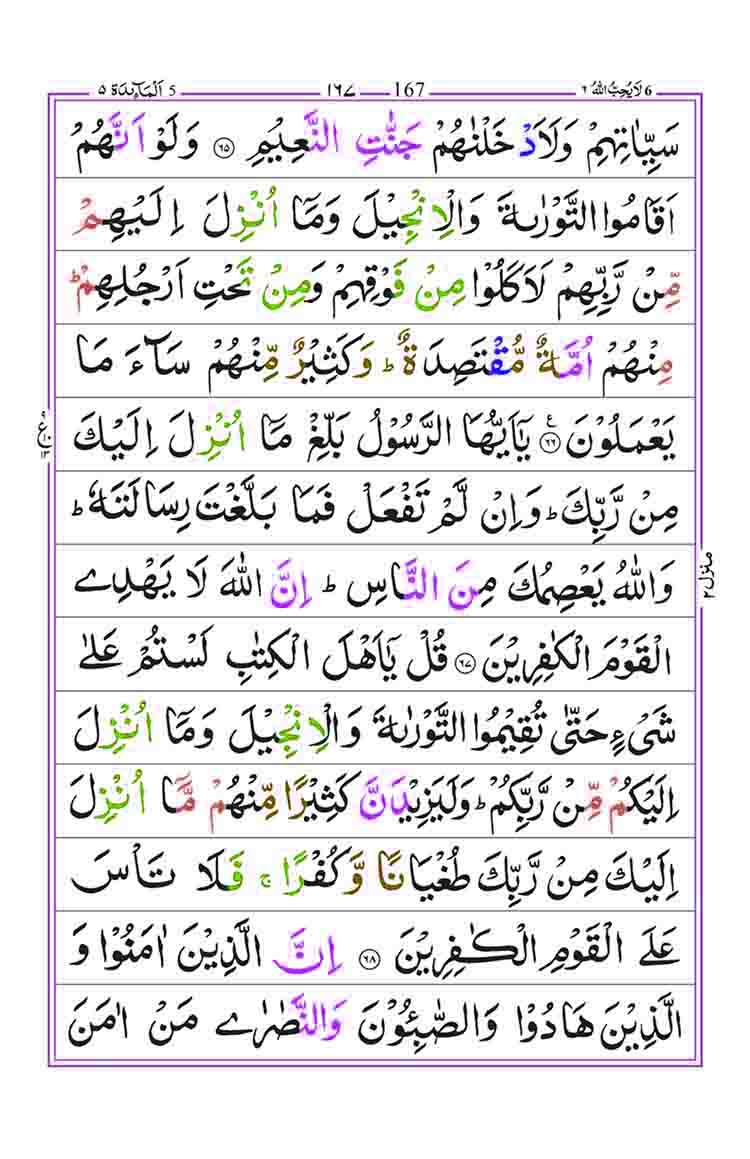 لَا يُحِبُّ اللّٰهُ ٦ 6 167 ١٦٧ 5 اَلْمَآئِدَة ٥
سَيِّاٰتِهِمْ وَلَاَدْخَلْنٰهُمْ جَنّٰتِ النَّعِيْمِ ۝٦٥ وَلَوْ اَنَّهُمْ
اَقَامُوا التَّوْرٰىةَ وَالْاِنْجِيْلَ وَمَاۤ اُنْزِلَ اِلَيْهِمْ
مِّنْ رَّبِّهِمْ لَاَكَلُوْا مِنْ فَوْقِهِمْ وَمِنْ تَحْتِ اَرْجُلِهِمْ ؕ
مِنْهُمْ اُمَّةٌ مُّقْتَصِدَةٌ ؕ وَكَثِيْرٌ مِّنْهُمْ سَآءَ مَا
يَعْمَلُوْنَ ۝٦٦ ع يٰۤاَيُّهَا الرَّسُوْلُ بَلِّغْ مَاۤ اُنْزِلَ اِلَيْكَ
مِنْ رَّبِّكَ ؕ وَاِنْ لَّمْ تَفْعَلْ فَمَا بَلَّغْتَ رِسَالَتَهٗ ؕ
وَاللّٰهُ يَعْصِمُكَ مِنَ النَّاسِ ؕ اِنَّ اللّٰهَ لَا يَهْدِى
الْقَوْمَ الْكٰفِرِيْنَ ۝٦٧ قُلْ يٰۤاَهْلَ الْكِتٰبِ لَسْتُمْ عَلٰى
شَىْءٍ حَتّٰى تُقِيْمُوا التَّوْرٰىةَ وَالْاِنْجِيْلَ وَمَاۤ اُنْزِلَ
اِلَيْكُمْ مِّنْ رَّبِّكُمْ ؕ وَلَيَزِيْدَنَّ كَثِيْرًا مِّنْهُمْ مَّاۤ اُنْزِلَ
اِلَيْكَ مِنْ رَّبِّكَ طُغْيَانًا وَّكُفْرًا ۚ فَلَا تَاْسَ
عَلَى الْقَوْمِ الْكٰفِرِيْنَ ۝٦٨ اِنَّ الَّذِيْنَ اٰمَنُوْا وَ
الَّذِيْنَ هَادُوْا وَالصّٰبِـُٔوْنَ وَالنَّصٰرٰى مَنْ اٰمَنَ
منزل ٢